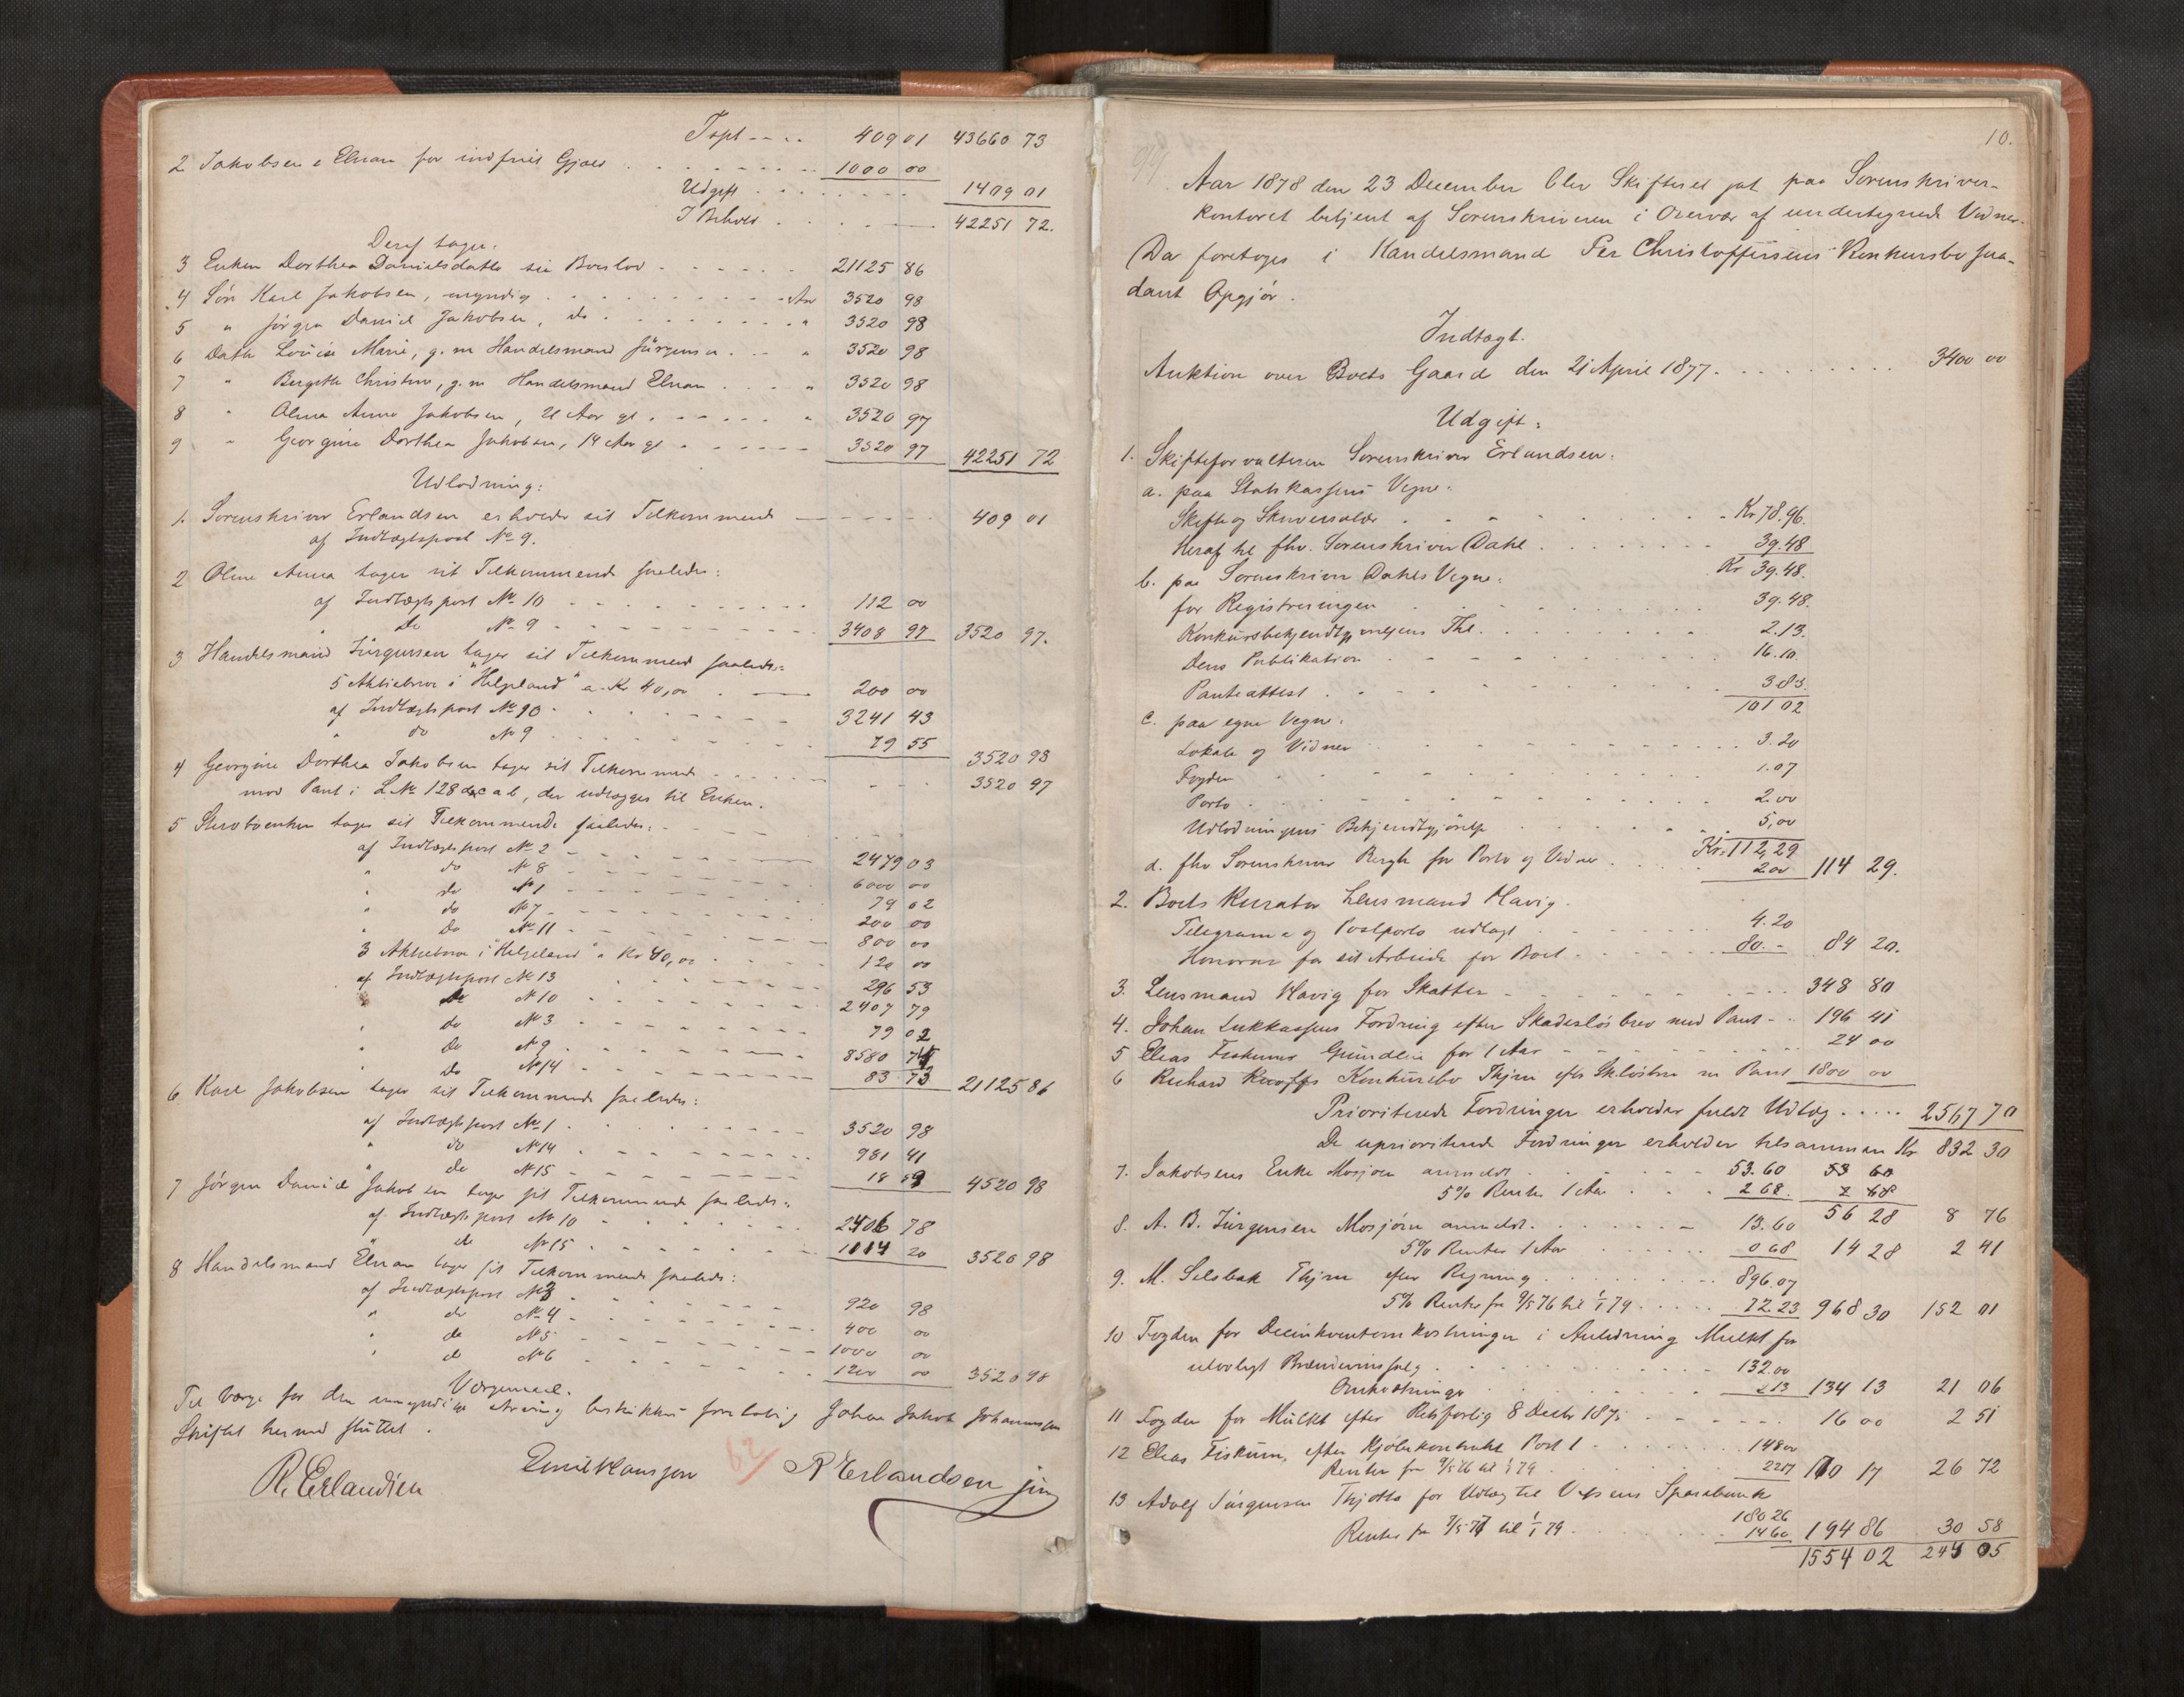 Tspt - - - - 409 01 43660 73
2 Jakobsen & Elnan for indfriet Gjæld . . . 1000 00
Udgift . . . 1409 01
I Behold . . . 42251 72.
Deraf tager:
3 Enken Dorthea Danielsdatter sin Boeslod - - - 21125 86
4 Søn Karl Jakobsen, myndig . . . Arv 3520 98
5 " Jørgen Daniel Jakobsen, do . . . " 3520 98
6 Datter Louise Marie, g. m. Handelsmand Jürgensen . . " 3520 98
7 " Bergitte Christine, g. m. Handelsmand Elnan . . . " 3520 98
8 " Oline Anna Jakobsen, 21 Aar gl . . . " 3520 97
9 " Georgine Dorthea Jakobsen, 14 Aar gl . . . 3520 97 42251 72
Udlodning:
1. Sorenskriver Erlandsen erholder sit Tilkommende - - - 409 01
af Indtægtspost No 9.
2 Oline Anna tager sit Tilkommende saaledes:
af Indtægtspost No 10 - - - 112 00
" do No 9 - - - 3408 97 3520 97.
3 Handelsmand Jürgensen tager sit Tilkommend saaledes:
5 Aktiebreve i "Helgeland" a Kr 40,00 . 200 00
af Indtægtspost No 10 - . . . 3241 43
" do No 9 . . . 79 55 3520 98
4 Georgine Dorthea Jakobsen tager sit Tilkommende . . . 3520 97
mod Pant i L. No 128 a b, der udlægges til Enken.
5 Stervboenken tager sit Tilkommende saaledes:
af Indtægtspost No 2 - - - 2479 03
" do No 8 - - - 6000 00
" do No 1 - - - 79 02
" do No 7 - - - 200 00
" do No 11 - - - 800 00
3 Aktiebreve i "Helgeland" a Kr 40,00 . . . 120 00
af Indtægtspost No 13 . . . 296 53
" do No 10 . . . 2407 79
" do No 3 . . . 79 02
" do No 9 . . . 8580 74
" do No 14 . . . 83 73 21125 86
6 Karl Jakobsen tager sit Tilkommende saaledes:
af Indtægtspost No 1 . . . 3520 98
" do No 14 . . . 981 41
" do No 15 - - - 18 59 4520 98
7 Jørgen Daniel Jakobsen tager sit Tilkommende saaledes:
af Indtægtspost No 10 . . . 2406 78
" do No 15 . . . 1114 20 3520 98
8 Handelsmand Elnan tager sit Tilkommende saaledes:
af Indtægtspost No 3 . . . 920 98
" do No 4 - - - 400 00
" do No 5 - - - 1000 00
" do No 6 . . . 1200 00 3520 98
Værgemaal.
Til Værge for den umyndige Arving beskikkes foreløbig Johan Jakob Johannessen
Skiftet hermed sluttet.
R. Erlandsen Emil Hansson 62/ R Erlandsen jun
10.
Aar 1878 den 23 December blev Skifteret sat paa Sorenskriver-
kontoret betjent af Sorenskriveren i Overvær af undertegnede Vidner.
Da foretoges i Handelsmand Per Christoffersens Konkursbo saa-
dant Opgjør.
Indtægt.
Auktion over Boets Gaard den 21 April 1877. . . . 3400 00
Udgift:
1. Skifteforvalteren Sorenskriver Erlandsen:
a. paa Statskassens Vegne:
Skifte og Skriversalær . . . Kr 78.96.
Heraf til fhv. Sorenskriver Dahl . . . 39.48
Kr 39.48.
b. paa Sorenskriver Dahls Vegne:
for Registreringen . . . 39.48.
Konkursbekjendtgjørelsens Thl. . . . 2.13.
Dens Publikation . . . 16.10
Panteattest . . . 3.83.
101 02
c. paa egne Vegne:
Lokale og Vidner . . . 3.20
Fogden . . . 1.07
Porto . . . 2.00
Udlodningens Bekjendtgjørelse . . . 5,00
Kr. 112,29
d. fhv Sorenskriver Bergh for Porto og Vidner . . . 2 00 114 29.
2. Boets Kurator Lensmand Havig.
Telegram og Postporto udlagt . . . 4.20
Honorar for sit Arbeide for Boet . . . 80.- 84 20.
3. Lensmand Havig for Skatter . . . 348 80
4. Johan Lukkassens Fordring efter Skadesløsbrev med Pant - - 196 41
5 Elias Fiskums Grundleie for 1 Aar - - - 24 00
6 Richard Knoffs Konkursbo Thjem efter Skløsbrev m Pant 1800 00
Prioriterede Fordringer erholder fuldt Udlæg . . . . . 2567 70
De uprioriterede Fordringer erholder tilsammen Kr 832 30
7. Jakobsens Enke Mosjøen anmeldt . . . 53.60 53 60
5% Renter 1 Aar . . . 2 68. 2 68
56 28 8 76
8. A. B. Jürgensen Mosjøen anmeldt. . . . 13.60
5% Renter 1 Aar . . . 0 68 14 28 2 41
9. M. Selsbak Thjem efter Regning . . . 896.07
5% Renter fra 9/5 76 til 1/1 79 . . . 72.23 968 30 152 01
10 Fogden for Delinkventomkostninger i Anledning Mulkt for
ulovligt Brændevinssalg . . . 132.00
Omkostninger . . . 2 13 134 13 21 06
11 Fogden for Mulkt efter Retsforlig 8 Decbr 187 . . . 16 00 2 51
12 Elias Fiskum, efter Kjøbekontrakt Post 1 . . . 148 00
Renter fra 9/5 76 til 1/1 79 . . . 22 17 170 17 26 72
13 Adolf Jürgensen Thjotta for Udlæg til Vefsens Sparebank
180 26
Renter fra 7/5 77 til 1/1 79 . . . 14 60 194 86 30 58
1554 02 244 05